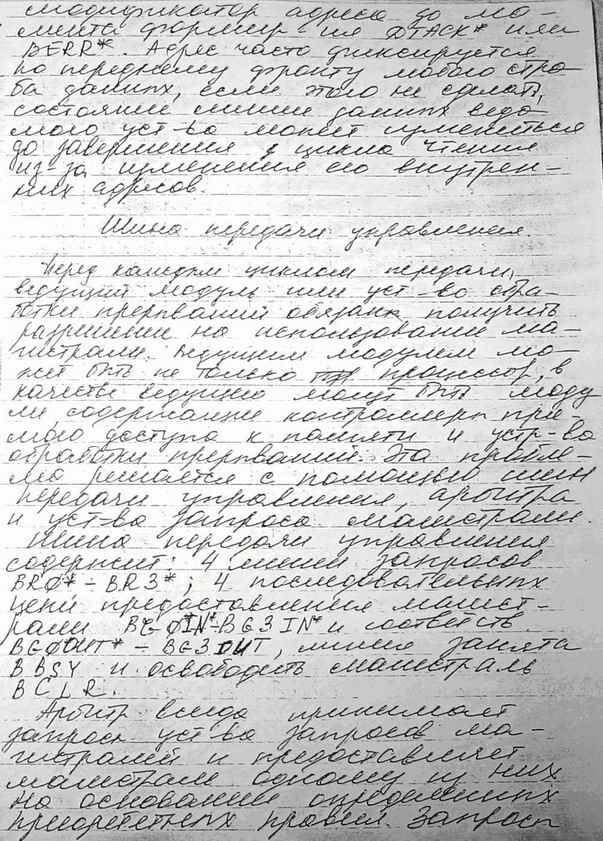 модификатор адреса до мо-
мента формир-ия DTACK* или
BERR*. Адрес часто фиксируется
по переднему фронту любого стро-
ба данных, если этого не сделать,
состояние линии данных ведо-
мого уст-ва может измениться
до завершения цикла чтения
из-за изменения его внутрен-
них адресов.
Шина передачи управления
Перед каждым циклом передачи,
ведущий модуль или уст-во обра-
ботки прерываний обязан получить
разрешение на использование ма-
гистрали. Ведущим модулем мо-
жет быть не только процессор, в
качестве ведущего могут быть моду
ли содержащие контроллеры пря
мого доступа к памяти и устр-ва
обработки прерываний. Эта пробле-
ма решается с помощью шин
передачи управления, арбитра
и уст-ва запроса магистрали.
Шина передачи управления
содержит: 4 линии запросов
BRØ* - BR3*; 4 последовательных
цепи предоставления магист-
рали BGØIN*-BG3IN* и соответств.
BGØOUT* - BG3OUT, линию занята
BBSY и освободить магистраль
BCLR.
Арбитр всегда принимает
запросы уст-ва запросов ма-
гистралей и предоставляет
магистраль одному из них
на основании определенных
приоритетных правил. Запросы